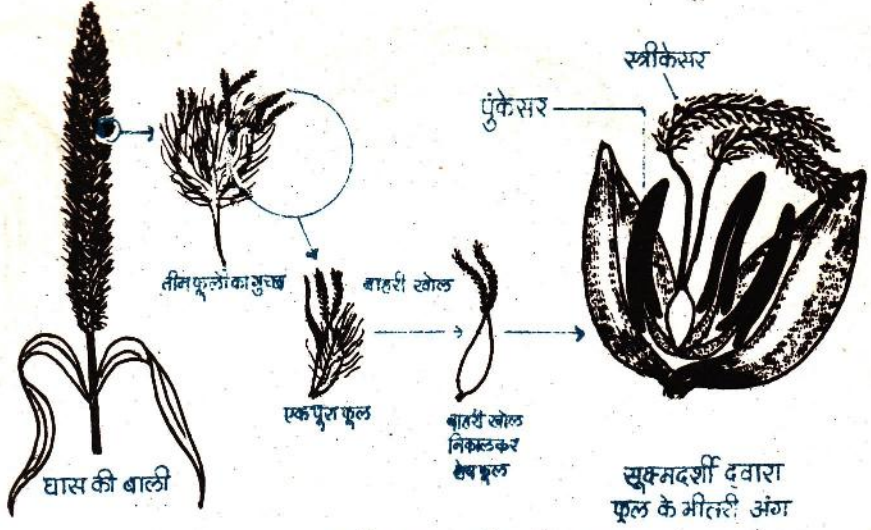 स्त्रीकेसर
पुंकेसर
तीन फूलों का गुच्छा
बाहरी खोल
एक पूरा फूल
बाहरी खोल
निकालकर
शेष फूल
घास की बाली
सूक्ष्मदर्शी द्वारा
फूल के भीतरी अंग